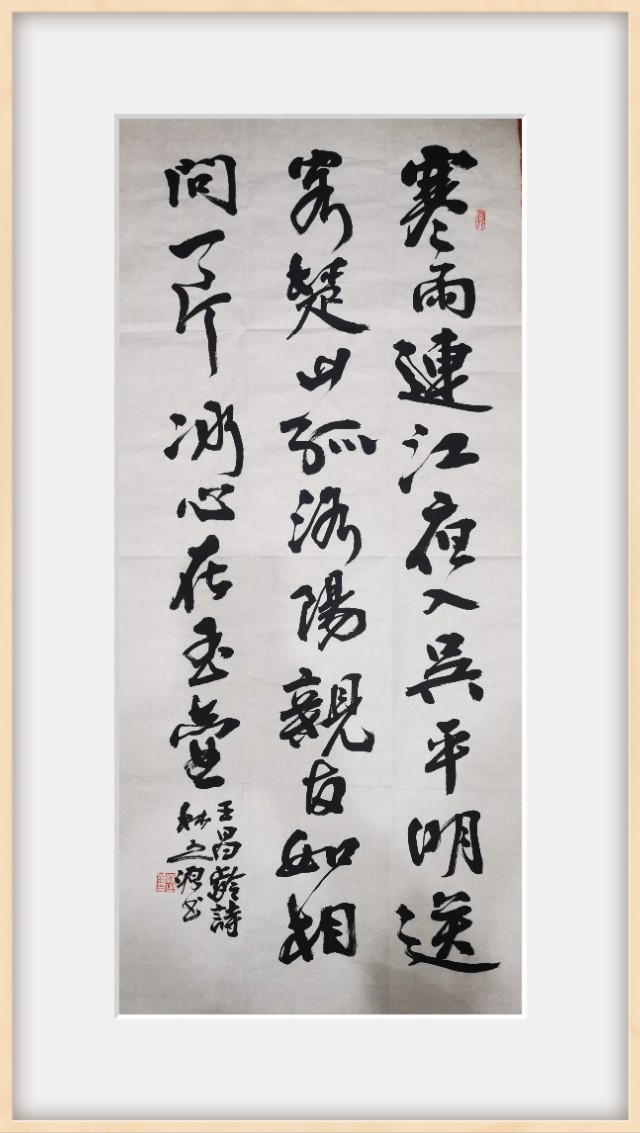 寒雨連江夜入吳平明送
客楚山孤洛陽親友如相
問一片冰心在玉壺
王昌齡詩